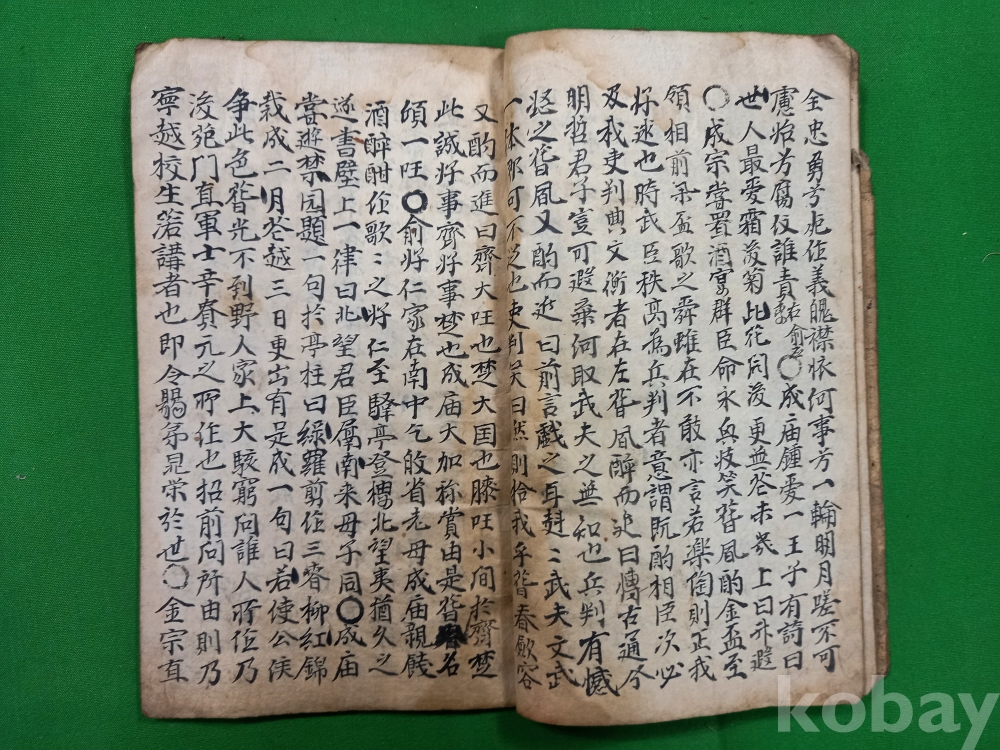 全忠勇兮死作義魄襟依何事兮一輪明月嗟不可
慮怡兮腐仅誰責 右俞 ○成庙鍾愛一王子有詩曰
世人最爱霜後菊此花開後更無花未幾上曰升遐
○成宗嘗置酒宴群臣命永興妓笑春風酌金盃至
領相前朶盃歌之舜雖在不敢亦言若樂陶則正我
好逑也時武臣秩高為兵判者意謂既酌相臣次必
及我吏判典文衡者在左春風酌而進曰博古通今
明哲君子豈可遐棄何取武夫之無知也兵判有憾
怒之春風又酌而进曰前言戲之耳赳々武夫文武
一体那可不從也吏判笑曰然則捨我乎春春歛容
又酌而進曰齊大旺也楚大国也滕旺小间於齊楚
此誠好事齊好事楚也成庙大加称賞由是春名
傾一旺○俞好仁家在南中乞皈省老母成庙親餞
酒醉酣作歌々之好仁至驛亭登樓北望夷猶久之
遂書壁上一律曰北望君臣鬲南来母子同○成庙
嘗遊禁园題一句於亭柱曰綠羅剪作三春柳紅錦
裁成二月花越三日更出有足成一句曰若使公侯
争此色春光不到野人家上大駭窮问誰人所作乃
後苑门直軍士辛賁元之所作也招前问所由則乃
寧越校生落講者也即令賜苐晁栄於世○金宗直
kobay